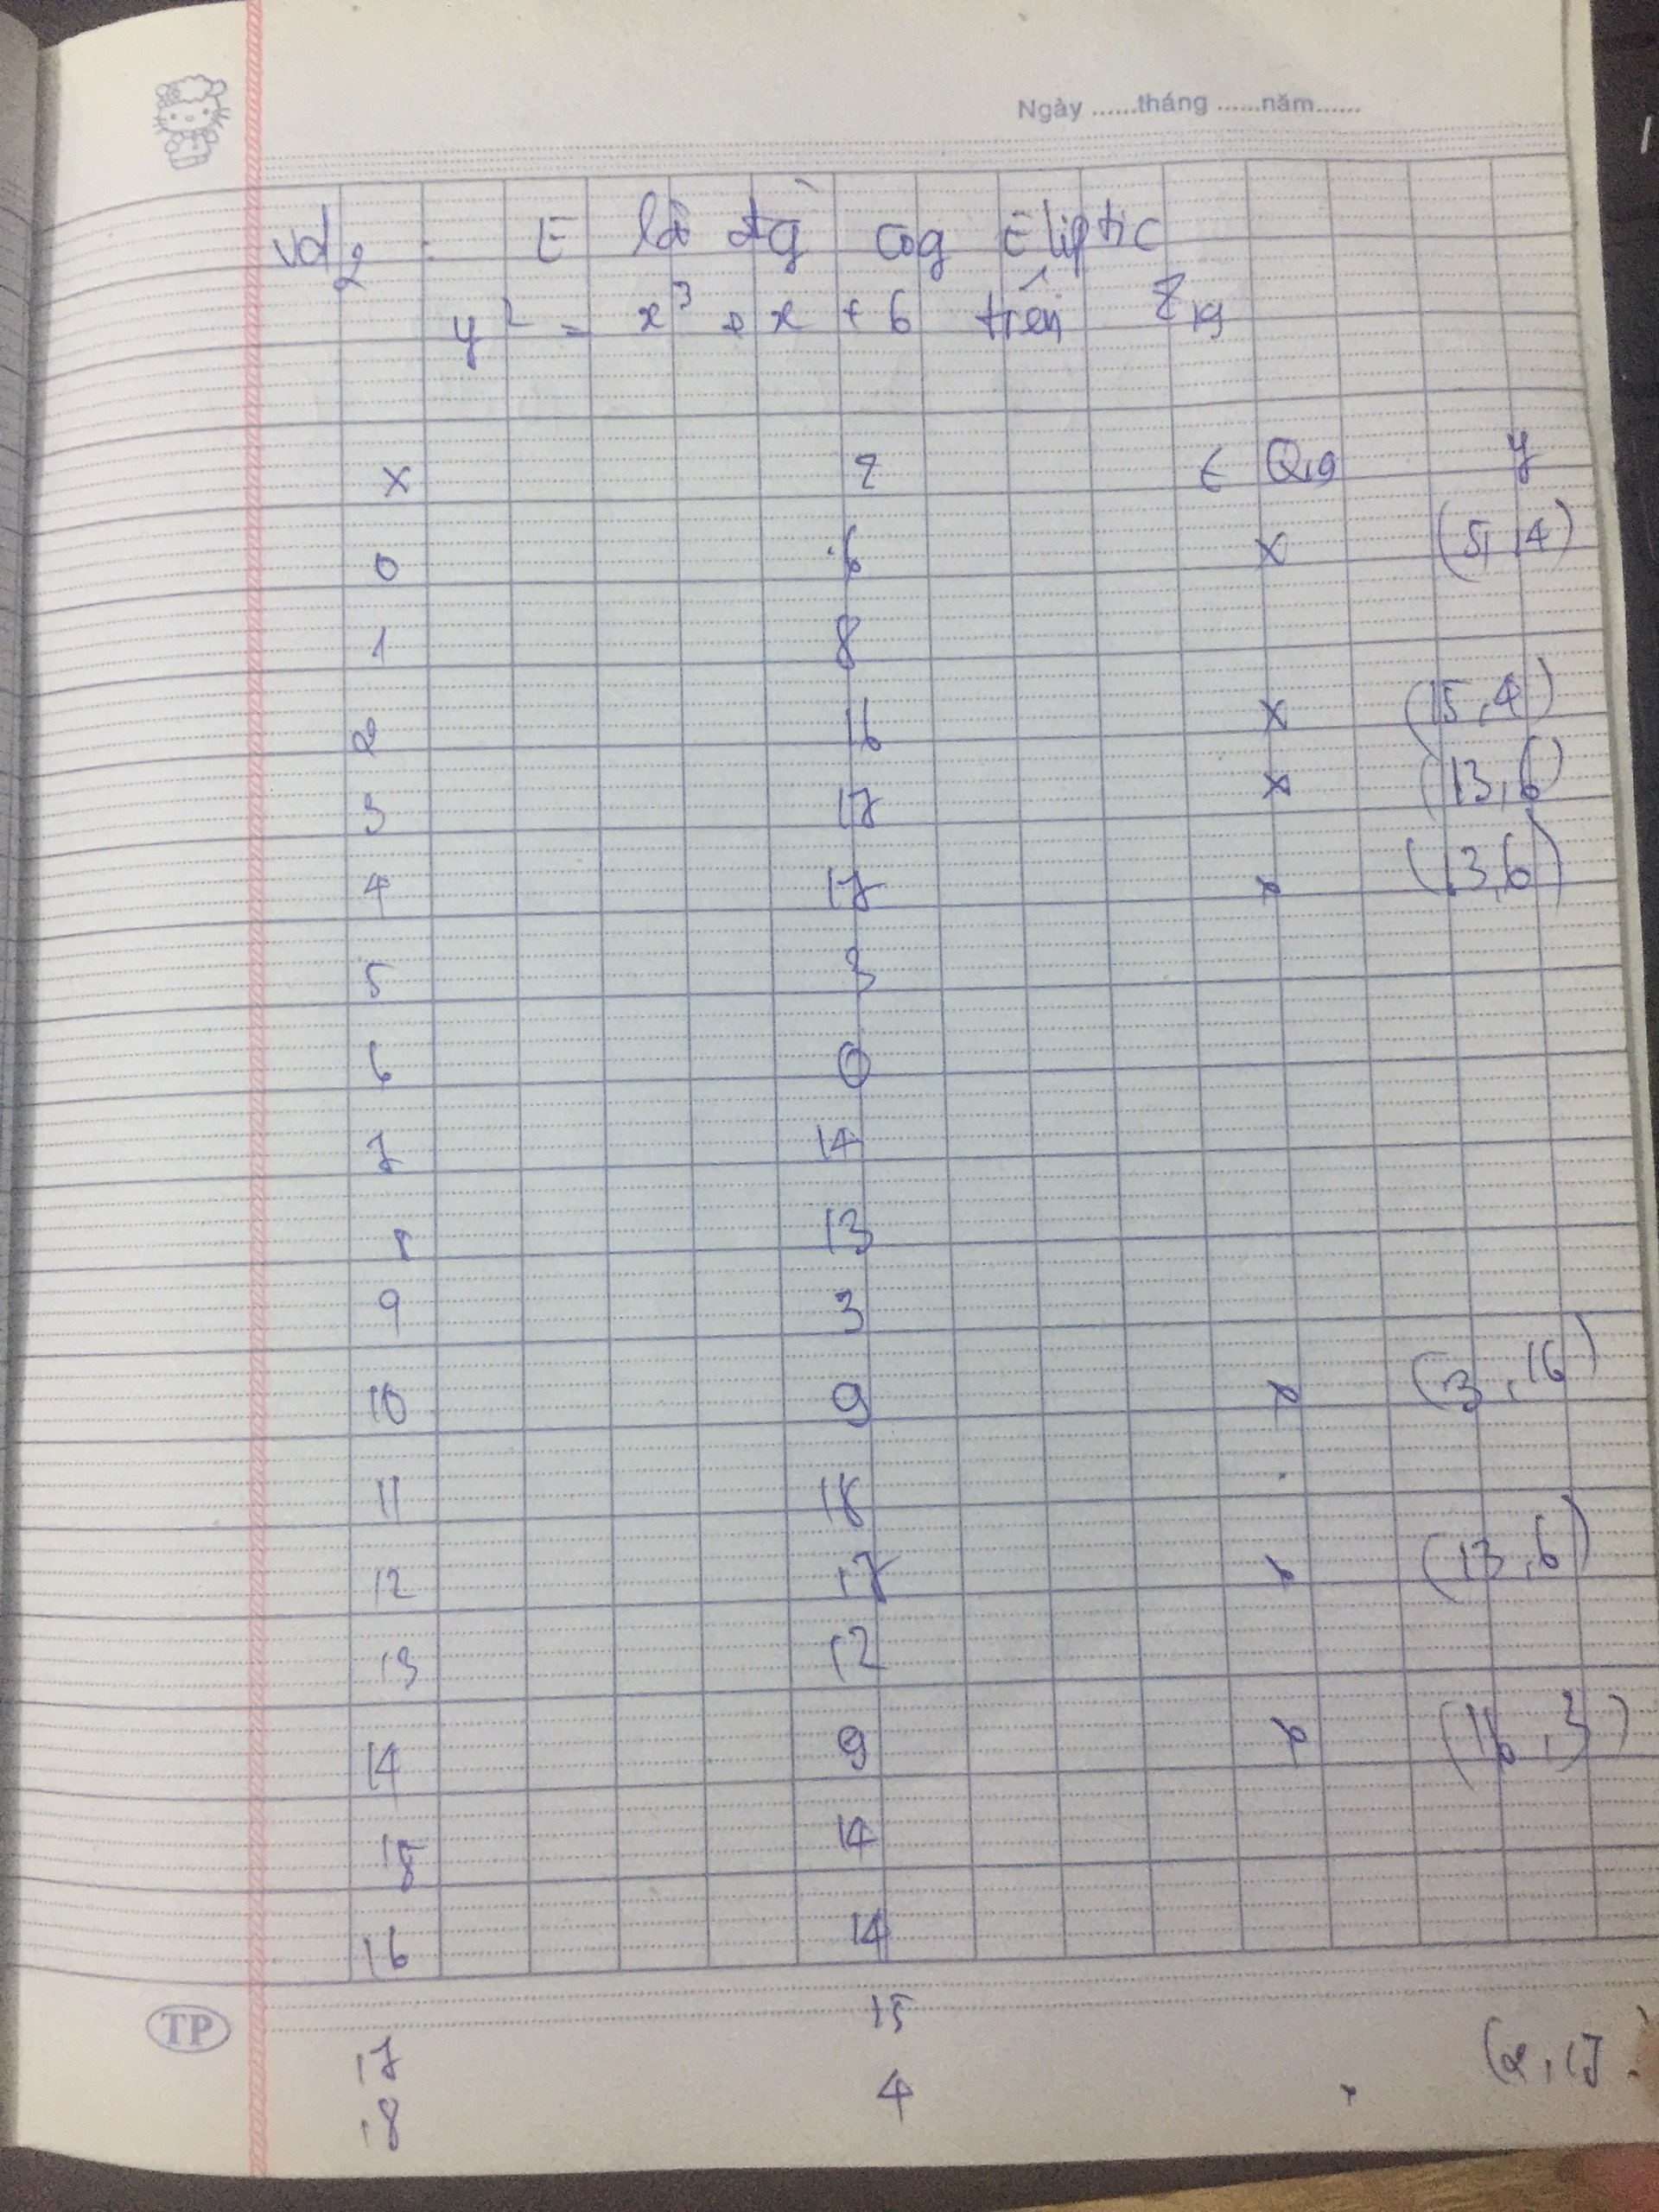 Ngày ......tháng ......năm......
Vd2 : E là đg cog Eliptic
y² = x³ + x + 6 trên Z19
x z ∈ Q19 y
0 6 x (5, 14)
1 8
2 16 x (15, 4)
3 17 x (13, 6)
4 17 x (13, 6)
5 3
6 0
7 14
8 13
9 3
10 9 x (3, 16)
11 18
12 17 x (13, 6)
13 12
14 9 x (16, 3)
15 14
16 14
17 15
18 4 x (2, 17)
TP